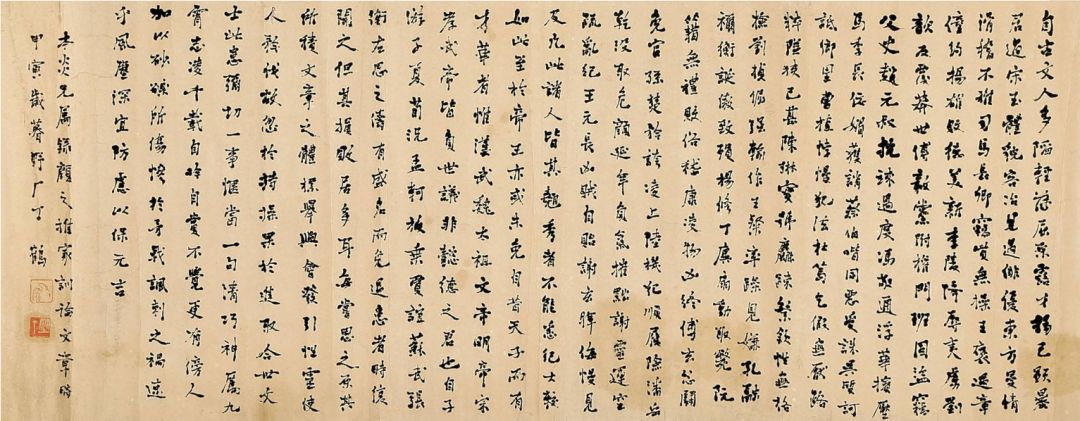 自古文人多陷輕薄屈原露才揚己顯暴
君過宋玉體貌容冶見遇俳優東方曼倩
滑稽不雅司馬長卿竊貲無操王褒過章
僮約揚雄敗德美新李陵降辱夷虜劉
歆反覆莽世傅毅黨附權門班固盜竊
父史趙元叔抗竦過度馮敬通浮華擯壓
馬季長佞媚獲誚蔡伯喈同惡受誅吳質訶
詆鄉里曹植悖慢犯法杜篤乞假無厭路
粹隘狹已甚陳琳實號麤疎繁欽性無格
檢劉楨倔强輸作王粲率躁見嫌孔融
禰衡誕傲致殞楊修丁廙扇動取斃阮
籍無禮敗俗嵇康凌物凶終傅玄忿鬭
免官孫楚矜誇凌上陸機犯順履險潘岳
乾沒取危顏延年負氣摧黜謝靈運空
疏亂紀王元長凶賊自貽謝玄暉侮慢見
及凡此諸人皆其翹秀者不能悉紀大較
如此至於帝王亦或未免自昔天子而有
才華者惟漢武魏太祖文帝明帝宋
孝武帝皆負世議非懿德之君也自子
游子夏荀況孟軻枚乘賈誼蘇武張
衡左思之儔有盛名而免過患者時復
聞之但其損敗居多耳每嘗思之原其
所積文章之體標舉興會發引性靈使
人矜伐故忽於持操果於進取今世文
士此患彌切一事愜當一句清巧神厲九
霄志凌千載自吟自賞不覺更有傍人
加以砂礫所傷慘於矛戟諷刺之禍速
乎風塵深宜防慮以保元吉
炎兄屬錄顏之推家訓論文章時
甲寅歲暮野厂丁鶴